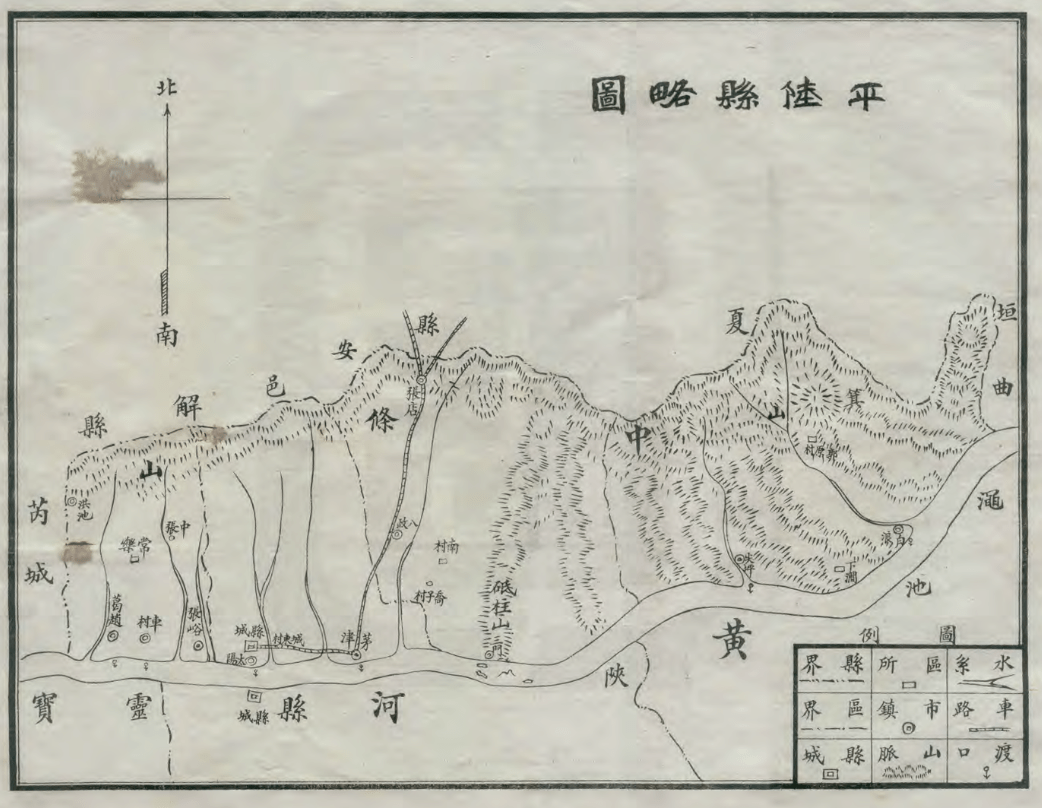 平陸縣略圖
北
南
垣曲
夏縣
安邑
解縣
芮城
中條山
箕山
張店
郭原村
洪池
中張
常樂
八政
南村
喬子村
砥柱山
三門
下澗
白浪
葛趙
車村
張峪
縣城
太陽
城東村
茅津
澠池
陝縣
靈寶
縣城
黃河
圖例
水系
區所
縣界
車路
市鎮
區界
渡口
山脈
縣城